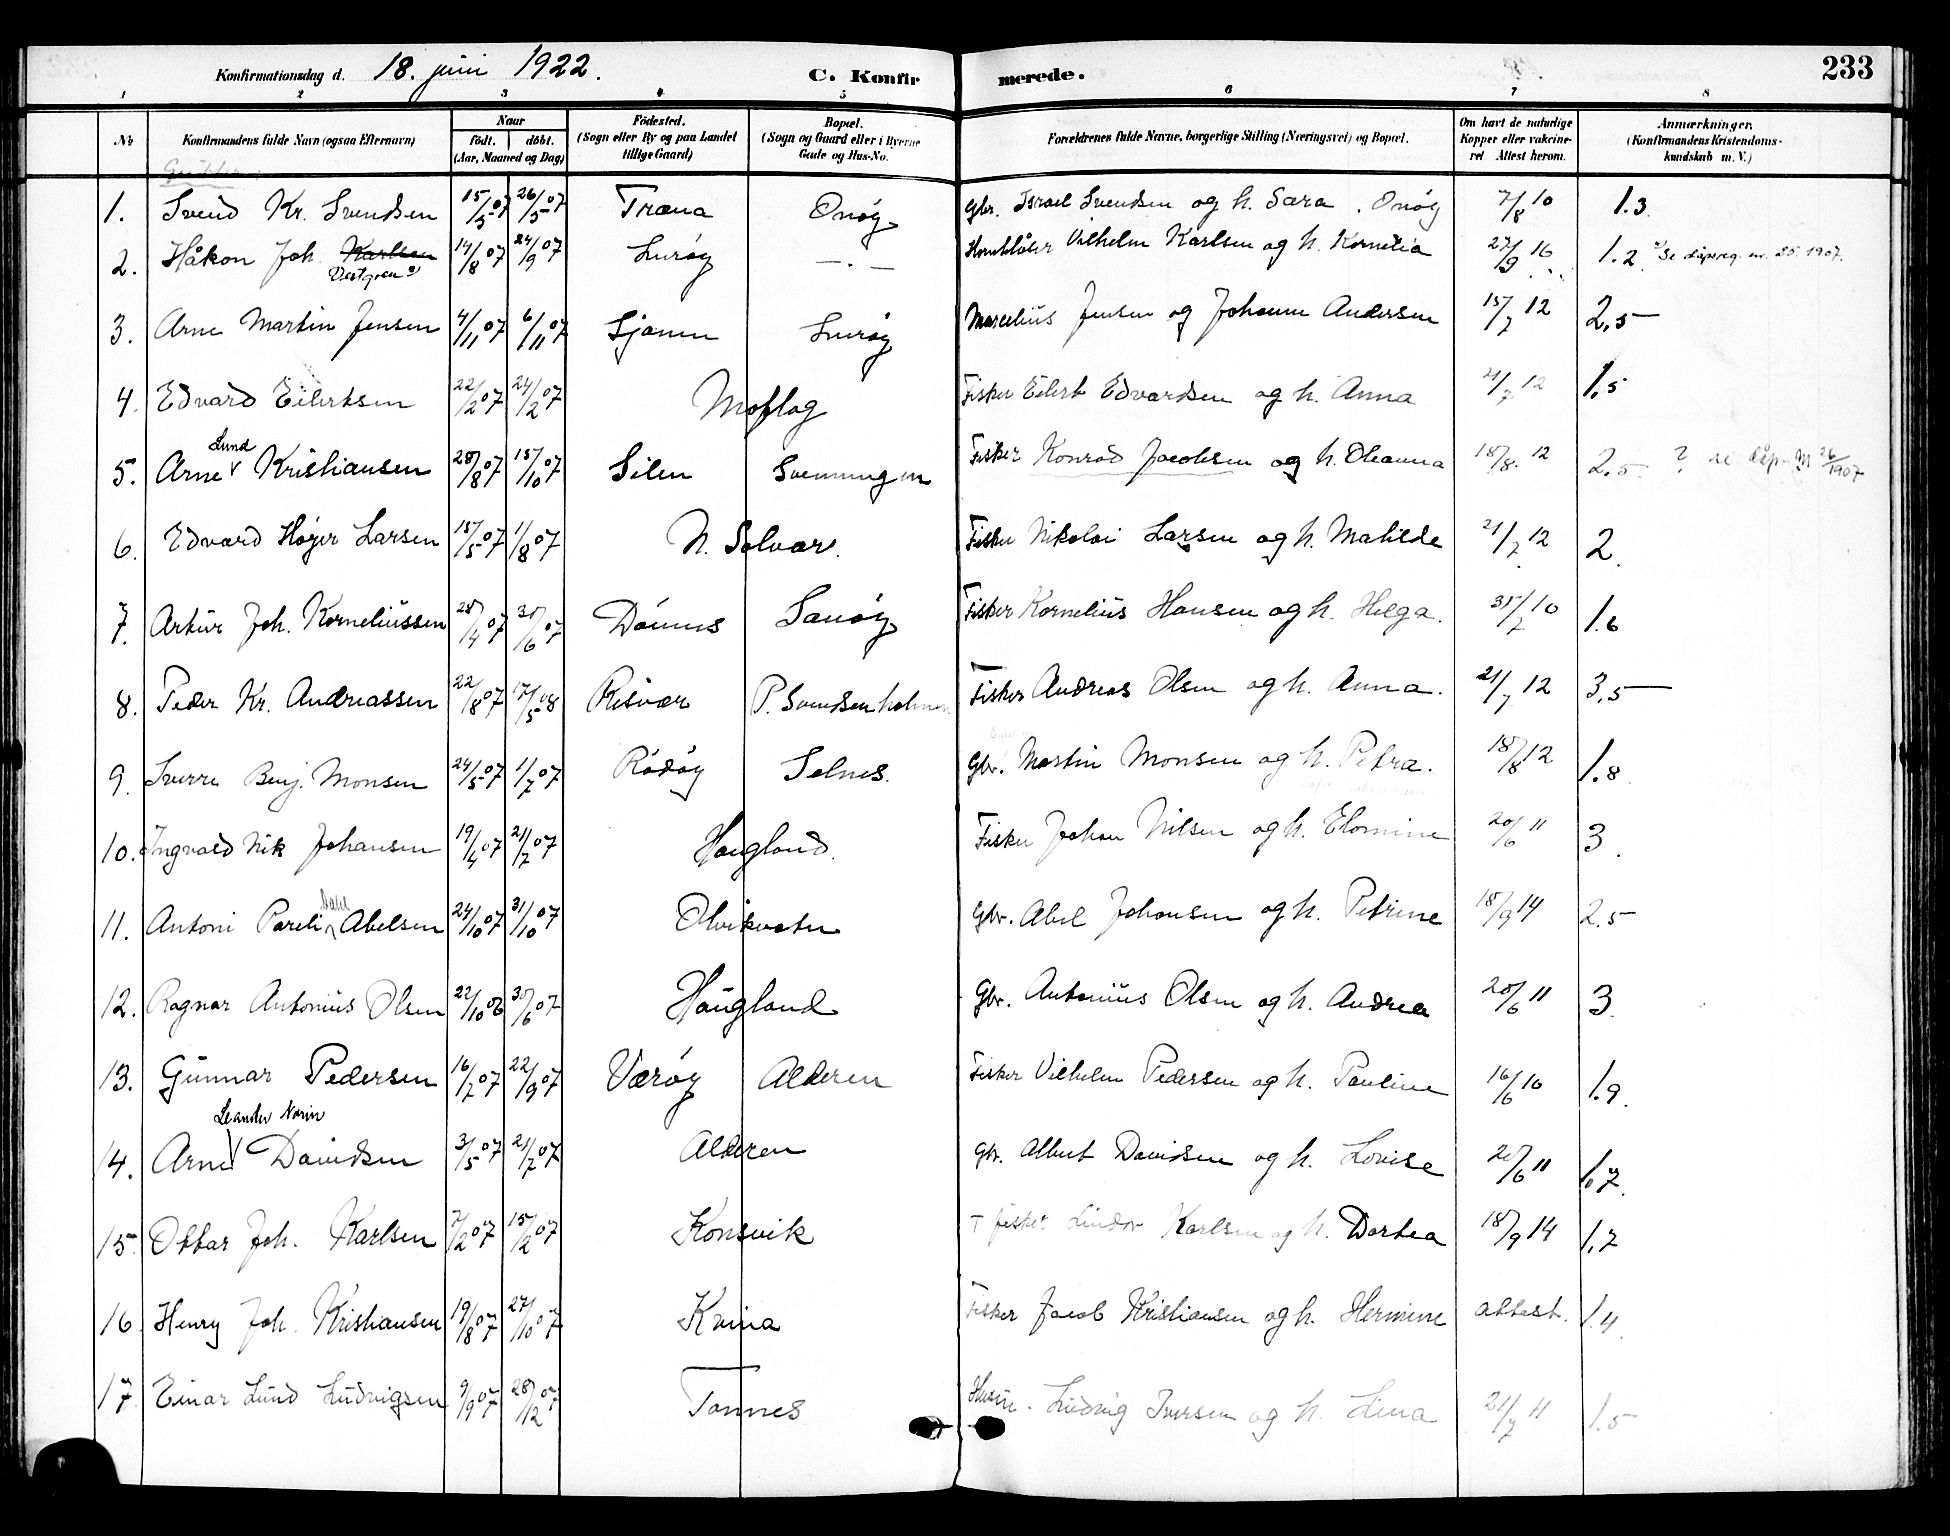 Konfirmationsdag d. 18. juni 1922. C. Konfirmerede. 233
1 2 3 4 5 6 7 8
No Konfirmandens fulde Navn (ogsaa Efternavn) Naar født. døbt. (Aar, Maaned og Dag) Fødested. (Sogn eller By og paa Landet tillige Gaard) Bopæl. (Sogn og Gaard eller i Byerne Gade og Hus-No. Forældrenes fulde Navne, borgerlige Stilling (Næringsvei) og Bopæl. Om havt de naturlige Kopper eller vakcineret. Attest herom. Anmærkninger. (Konfirmandens Kristendomskundskab m. V.)
Gutter
1. Svend Kr. Svendsen 15/5 07 26/5 07 Træna Onøy Gbr. Israel Svendsen og h. Sara. Onøy 7/8 10 1.3
2. Håkon Joh. Karlsen 14/8 07 24/9 07 Lurøy — . — Vilhelm Karlsen og h. Kornelia 27/9 16 1.2 Se dåpsreg. nr. 25. 1907.
Vestgren
3. Arne Martin Jensen 4/11 07 6/11 07 Sjonen Lurøy Marcelius Jensen og Johanne Andersen 15/7 12 2,5
4. Edvard Eilertsen 22/2 07 24/2 07 Moflag Fisker Eilert Edvardsen og h. Anna 21/7 12 1,5
Lund
5. Arne Kristiansen 28/8 07 15/10 07 Silen Svenningen Fisker Konrad Jacobsen og h. Oleanna 18/8. 12 2,5 ? se dåp. 26/1907
6. Edvard Høyer Larsen 15/5 07 1/8 07 N. Solvær. Fisker Nikolai Larsen og h. Matilde 21/7 12 2
7. Artur Joh. Korneliussen 28/4 07 30/6 07 Dønnes Sanøy Fisker Kornelius Hansen og h. Helga. 31/7 10 1.6
8. Peder Kr. Andreassen 22/8 07 17/5 08 Risvær P. Svendsenholmen Fisker Andreas Olsen og h. Anna. 21/7 12 3,5
9. Sverre Benj. Monsen 24/5 07 1/7 07 Rødøy Selnes. Gbr. Martin Monsen og h. Petra. 18/8 12 1.8
10. Ingvald Nik Johansen 19/4 07 21/7 07 Haugland. Fisker Johan Nilsen og h. Elomine 20/6 11 3.
Dahl
11. Antoni Pareli Abelsen 24/10 07 31/10 07 Olvikvatn Gbr. Abel Johansen og h. Petrine 18/9 14 2.5
12. Ragnar Antonius Olsen 22/10 06 30/6 07 Haugland Gbr. Antonius Olsen og h. Andrea 20/6 11 3.
13. Gunnar Pedersen 16/7 07 22/9 07 Værøy Alderen Fisker Vilhelm Pedersen og h. Pauline 16/6 16 1.9.
Leander Norin
14. Arne Davidsen 3/5 07 21/7 07 Alderen Gbr. Albert Davidsen og h. Lovise 20/6 11 1.7.
15. Ottar Joh. Karlsen 7/2 07 15/2 07 Konsvik fisker Lindor Karlsen og h. Dortea 18/9 14 1.7
16. Henry Joh. Kristiansen 19/8 07 27/10 07 Kvina Fisker Jacob Kristiansen og h. Hermine attest. 1.4.
17. Einar Lund Ludvigsen 9/9 07 28/12 07 Tonnes Ludvig Iversen og h. Lina 21/7 11 1.5